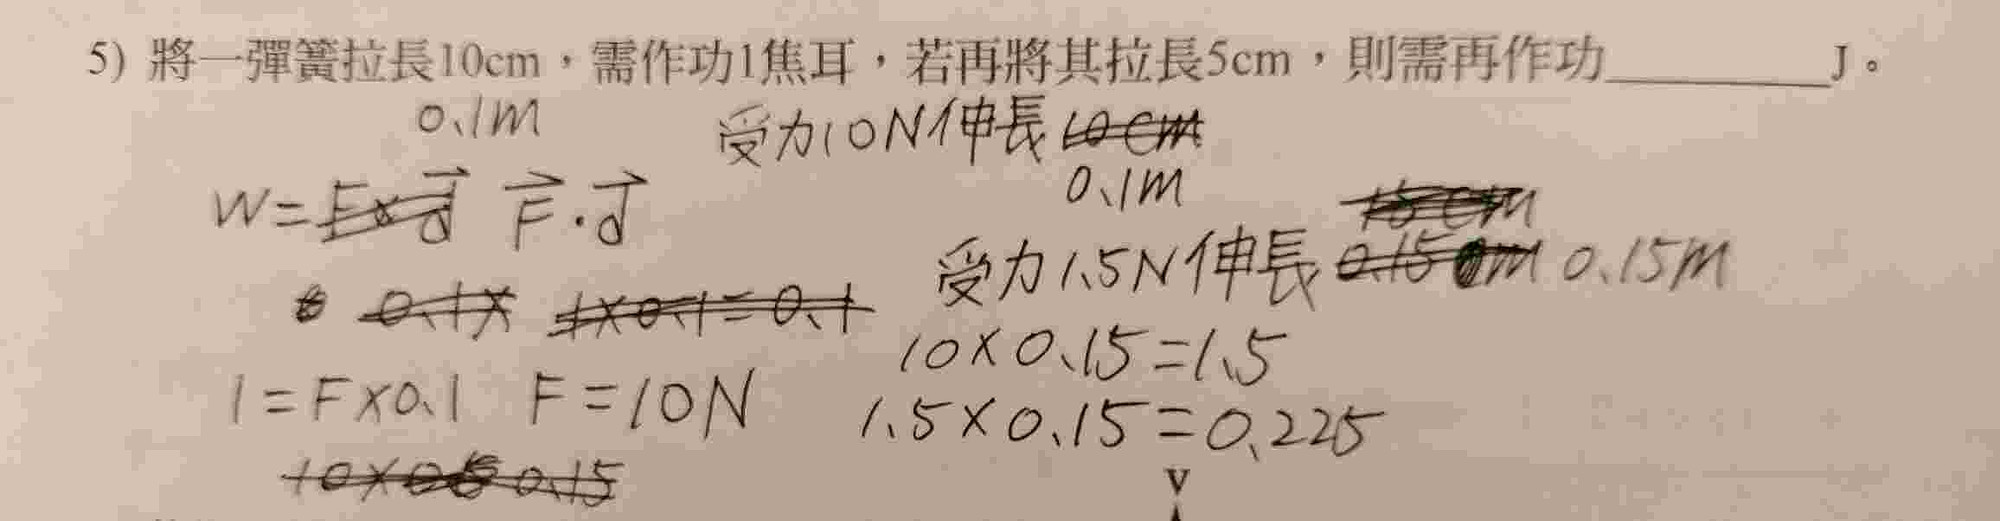 5) 將一彈簧拉長10cm，需作功1焦耳，若再將其拉長5cm，則需再作功________J。
0.1m
受力10N伸長 10cm
0.1m
W= F×d F·d
15cm
受力1.5N伸長 0.15cm 0.15m
0.1× 1×0.1=0.1
10×0.15=1.5
1=F×0.1 F=10N
1.5×0.15=0.225
10×0.15
V